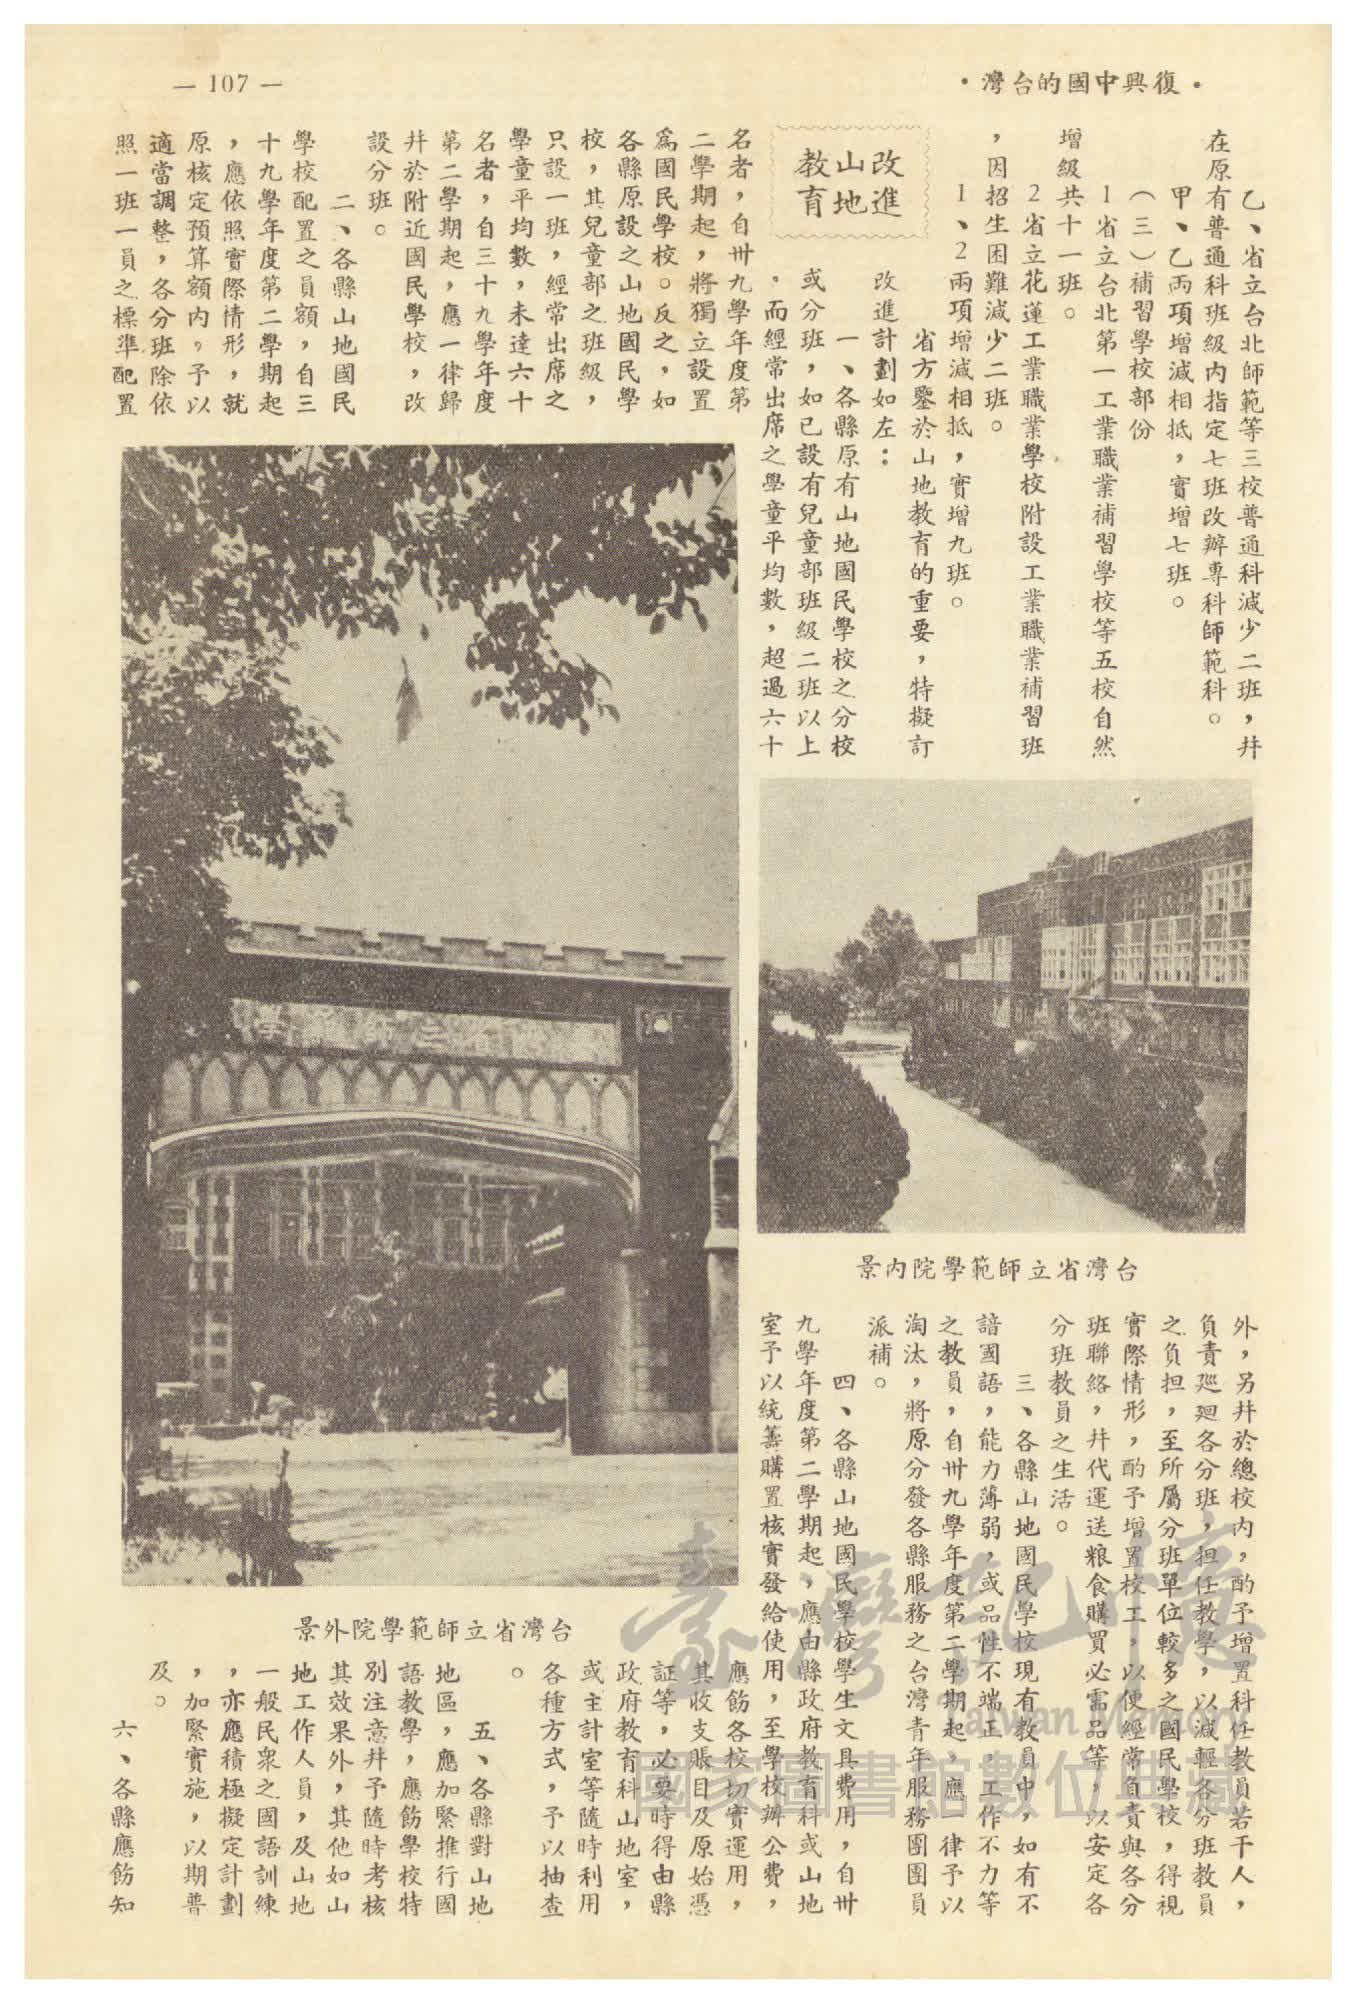 — 107 —
•灣台的國中興復•
乙、省立台北師範等三校普通科減少二班，幷
在原有普通科班級內指定七班改辦專科師範科。
甲、乙兩項增減相抵，實增七班。
（三）補習學校部份
1省立台北第一工業職業補習學校等五校自然
增級共十一班。
2省立花蓮工業職業學校附設工業職業補習班
，因招生困難減少二班。
1、2兩項增減相抵，實增九班。
改進
山地
教育
省方鑒於山地教育的重要，特擬訂
改進計劃如左：
一、各縣原有山地國民學校之分校
或分班，如已設有兒童部班級二班以上
，而經常出席之學童平均數，超過六十
名者，自卅九學年度第
二學期起，將獨立設置
爲國民學校。反之，如
各縣原設之山地國民學
校，其兒童部之班級，
只設一班，經常出席之
學童平均數，未達六十
名者，自三十九學年度
第二學期起，應一律歸
幷於附近國民學校，改
設分班。
二、各縣山地國民
學校配置之員額，自三
十九學年度第二學期起
，應依照實際情形，就
原核定預算額內，予以
適當調整，各分班除依
照一班一員之標準配置
景內院學範師立省灣台
外，另幷於總校內，酌予增置科任教員若干人，
負責廵廻各分班，担任教學，以減輕各分班教員
之負担，至所屬分班單位較多之國民學校，得視
實際情形，酌予增置校工，以便經常負責與各分
班聯絡，幷代運送粮食購買必需品等，以安定各
分班教員之生活。
三、各縣山地國民學校現有教員中，如有不
諳國語，能力薄弱，或品性不端正，工作不力等
之教員，自卅九學年度第二學期起，應一律予以
淘汰，將原分發各縣服務之台灣青年服務團團員
派補。
四、各縣山地國民學校學生文具費用，自卅
九學年度第二學期起，應由縣政府教育科或山地
室予以統籌購置核實發給使用，至學校辦公費，
應飭各校切實運用，
其收支賬目及原始憑
証等，必要時得由縣
政府教育科山地室，
或主計室等隨時利用
各種方式，予以抽查
。
五、各縣對山地
地區，應加緊推行國
語教學，應飭學校特
別注意幷予隨時考核
其效果外，其他如山
地工作人員，及山地
一般民衆之國語訓練
，亦應積極擬定計劃
，加緊實施，以期普
及。
六、各縣應飭知
景外院學範師立省灣台
臺灣記憶
Taiwan Memory
國家圖書館數位典藏